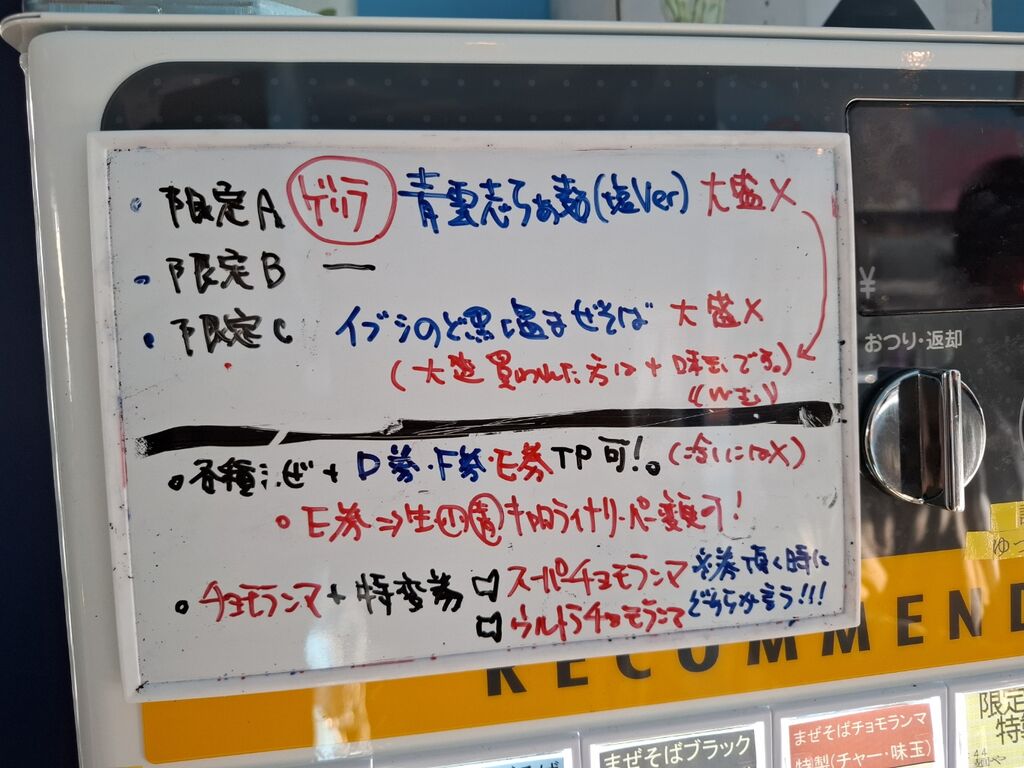 ・限定A ゲリラ 青雲志らぁ麺(塩Ver) 大盛×
・限定B ー
・限定C イブシのど黒塩まぜそば 大盛×
(大盛買われた方は+味玉です。)
¥
おつり・返却
。各種まぜ+D券・F券・E券TP可!。(冷しには×)
。E券⇒生 キャロライナリーパー変更可!
。チョモランマ+特変券 □スーパーチョモランマ ※券頂く時に
□ウルトラチョモランマ どちらか言う!!!
RECOMMEND
まぜそばブラック
まぜそばチョモランマ
特製(チャー・味玉)
限定